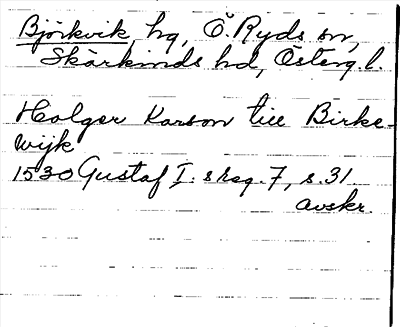 Björkvik, hg, Ö. Ryds sn,
Skärkinds hd, Österg. l.
Holger Karson till Birke-
wijk
1530 Gustaf I: s reg. 7, s. 31.
avskr.